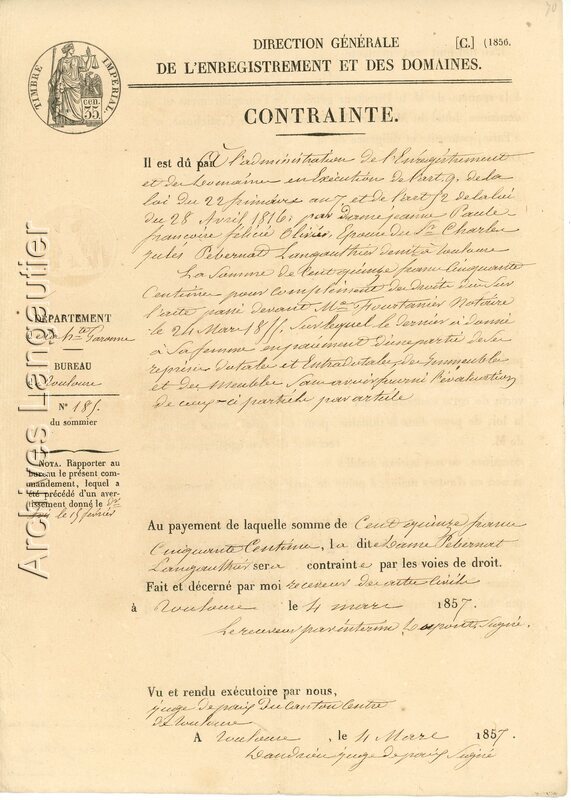 70
TIMBRE IMPÉRIAL.
35 cen.
DIRECTION GÉNÉRALE [C.] (1856.
DE L'ENREGISTREMENT ET DES DOMAINES.
CONTRAINTE.
Il est dû par à l'administration de l'Enregistrement
et des Domaines en Exécution de l'art. 9. de la
loi du 22 frimaire an 7 et de l'art 52 de la loi
du 28 Avril 1816, par Dame jeanne Paule
françoise félicie Olivier, Epouse du Sr Charles
jules Pebernat Langauthier, demt à Toulouse
La Somme de Cent quinze francs Cinquante
Centimes pour complément du Droits dû Sur
l'acte passé devant Me Fourtanier Notaire
le 24 Mars 185, Sur lequel le dernier a donné
à Sa femme en paiement d'une partie de Ses
reprises dotales et Extradotales, des Immeubles
et des Meubles Sans avoir fourni l'évaluation
de ceux-ci article par article
DÉPARTEMENT
de la Hte Garonne
BUREAU
de Toulouse
N° 185.
du sommier
NOTA. Rapporter au
bureau le présent com-
mandement, lequel a
été précédé d'un aver-
tissement donné le
le 15 février
Au payement de laquelle somme de Cent quinze francs
Cinquante Centimes, la dite Dame Pebernat
Langauthier sera contrainte par les voies de droit.
Fait et décerné par moi receveur des actes Civils
à Toulouse le 4 mars 1857.
Le receveur par interim signé.
Vu et rendu exécutoire par nous,
juge de paix du Canton Centre
de Toulouse
A Toulouse, le 4 Mars 1857.
juge de paix Signé
Archives Langautier